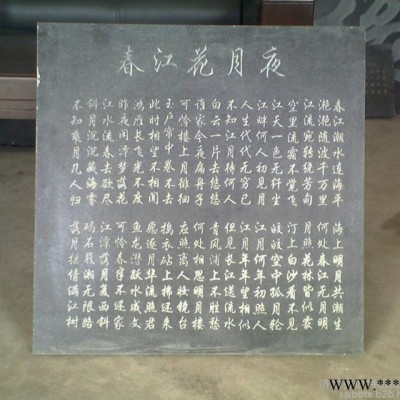 春江花月夜
春江潮水連海平
海上明月共潮生
滟滟随波千万里
何处春江无月明
江流宛转绕芳甸
月照花林皆似霰
空里流霜不觉飞
汀上白沙看不见
江天一色无纤尘
皎皎空中孤月轮
江畔何人初见月
江月何年初照人
人生代代无穷已
江月年年望相似
不知江月待何人
但见长江送流水
白云一片去悠悠
青枫浦上不胜愁
谁家今夜扁舟子
何处相思明月楼
可怜楼上月徘徊
应照离人妆镜台
玉户帘中卷不去
捣衣砧上拂还来
此时相望不相闻
愿逐月华流照君
鸿雁长飞光不度
鱼龙潜跃水成文
昨夜闲潭梦落花
可怜春半不还家
江水流春去欲尽
江潭落月复西斜
斜月沉沉藏海雾
碣石潇湘无限路
不知乘月几人归
落月摇情满江树
www.***